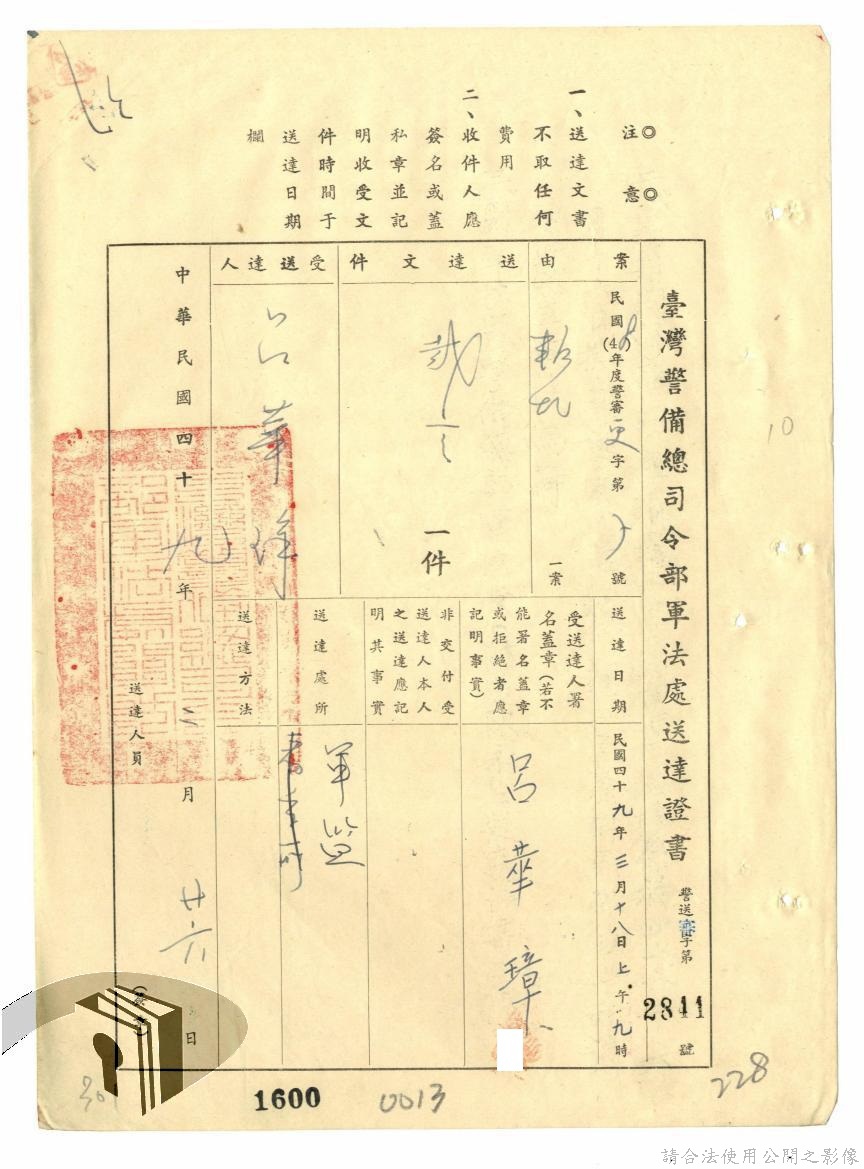 ◎注意◎
一、送達文書
不取任何
費用
二、收件人應
簽名或蓋
私章並記
明收受文
件時間于
送達日期
欄
臺灣警備總司令部軍法處送達證書
警送審字第2841號
案由
民國(48)年度警審更字第 號
叛亂
一案
送達文件
裁
一件
受送達人
呂華璋
送達日期
民國四十九年三月十八日上午九時
受送達人署
名蓋章(若不
能署名蓋章
或拒絕者應
記明事實)
呂華璋
非交付受
送達人本人
之送達應記
明其事實
送達處所
軍監
送達方法
中華民國四十九年二月廿六日
送達人員
1600
0013
228
10
30
請合法使用公開之影像